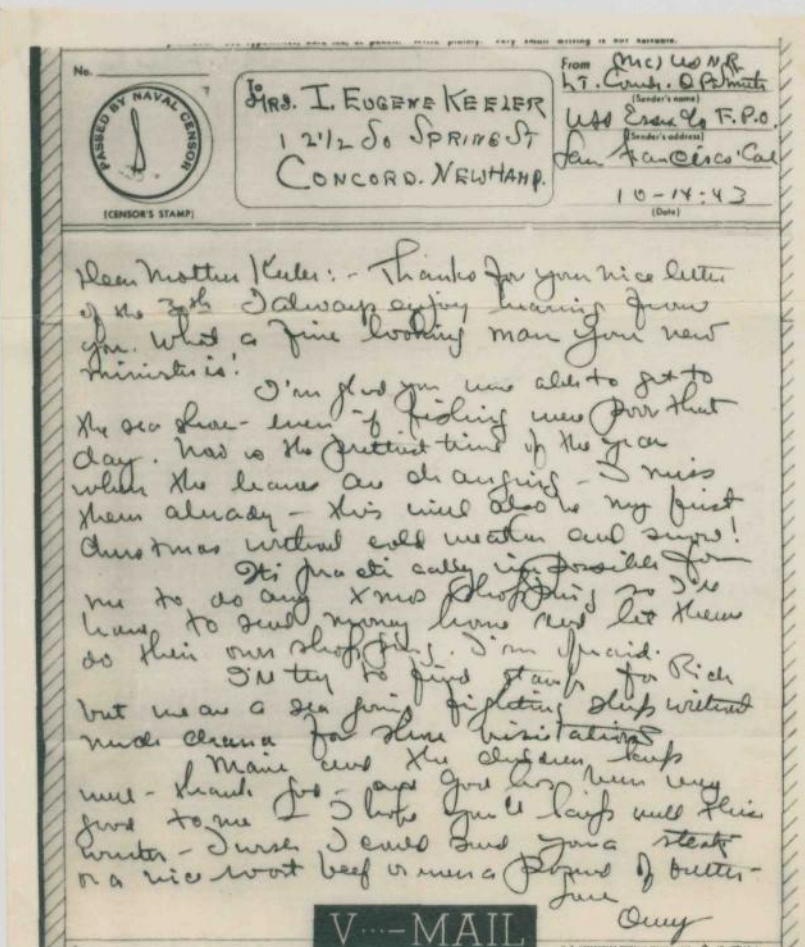 No.
PASSED BY NAVAL CENSOR
(CENSOR'S STAMP)
To
MRS. I. EUGENE KEELER
1 21/2 So SPRING ST
CONCORD. NEWHAMP.
From (MC) USNR
Lt. Comdr.
(Sender's name)
USS Essex % F.P.O.
(Sender's address)
San Francisco Cal
10-14-43
(Date)
Dear Mother Keeler:- Thanks for your nice letter
of the 30th I always enjoy hearing from
you. What a fine looking man your new
minister is!
I'm glad you were able to get to
the sea shore - even if fishing were poor that
day. Now is the prettiest time of the year
when the leaves are changing - I miss
them already - this will also be my first
Christmas without cold weather and snow!
Its practically impossible for
me to do any Xmas shopping so I'll
have to send money home and let them
do their own shopping. I'm afraid.
I'll try to find stamps for Rich
but we are a sea going fighting ship without
much chance for shore visitations
Marie and the children keep
well - thank God - and God has been very
good to me - I hope you'll keep well this
winter - I wish I could send you a steak
or a nice roast beef or even a pound of butter -
Love
V···-MAIL